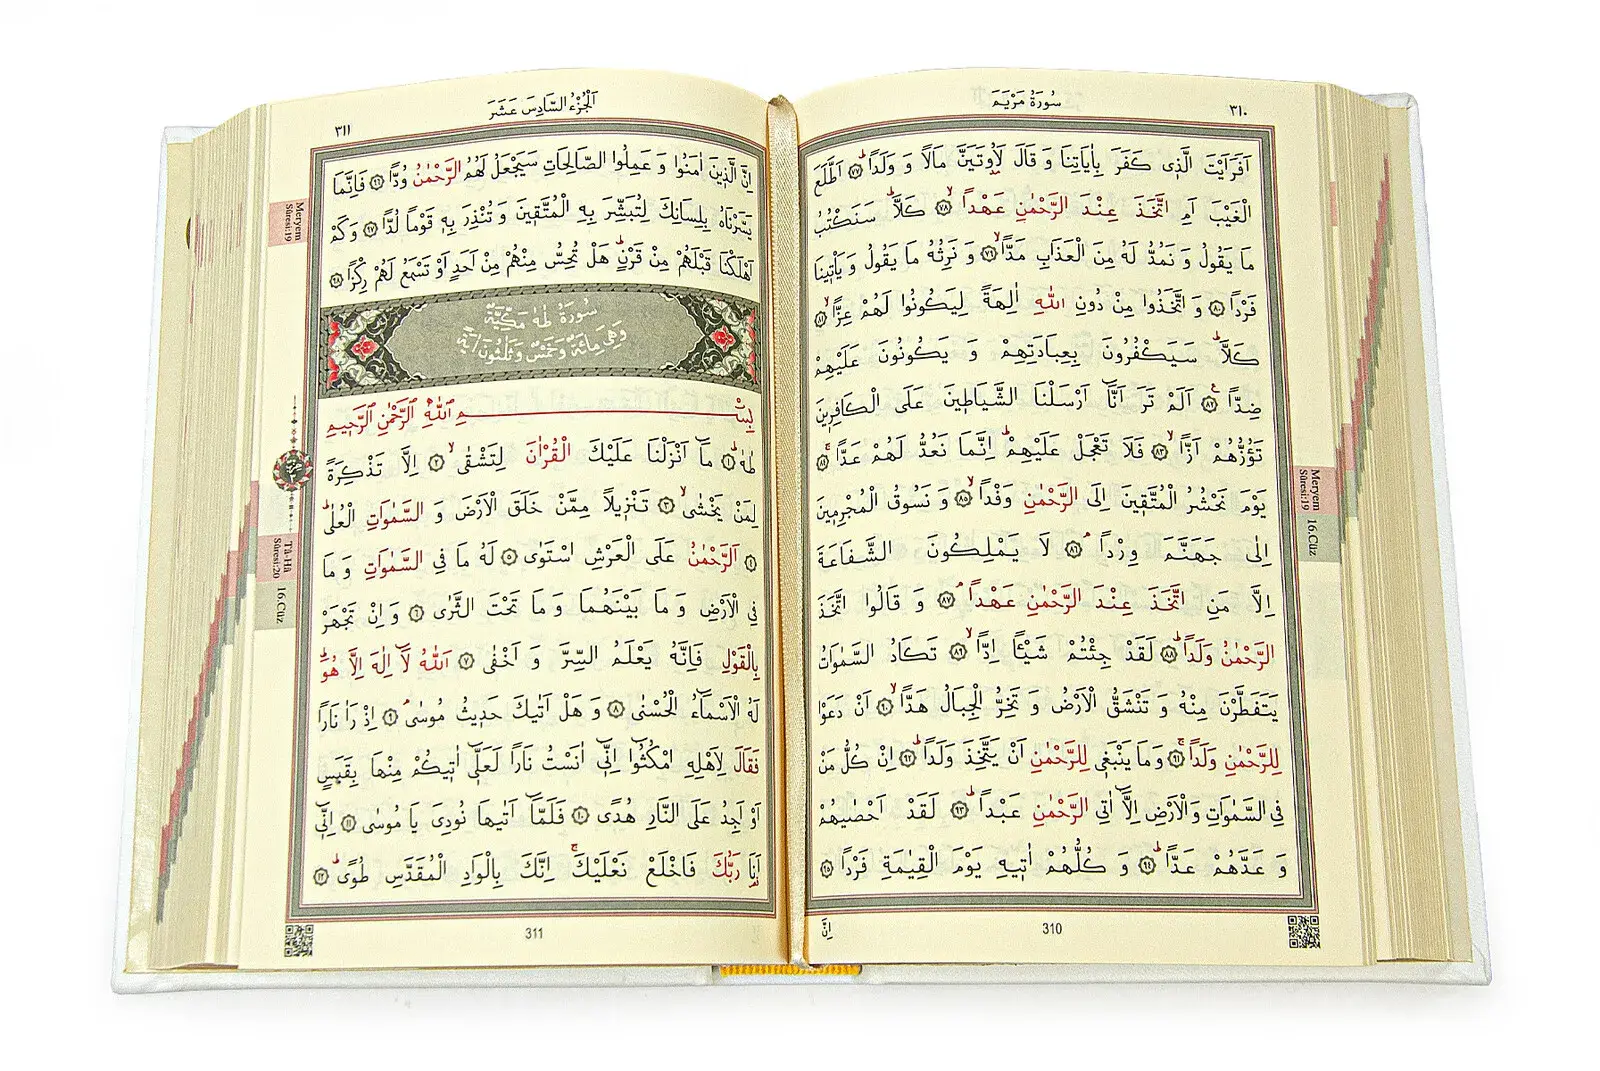 سُورَةُ مَرْيَمَ
٣١٠
اَفَرَاَيْتَ الَّذٖي كَفَرَ بِاٰيَاتِنَا وَ قَالَ لَاُوتَيَنَّ مَالًا وَ وَلَدًاۜ ﴿٧٧﴾ اَطَّلَعَ
الْغَيْبَ اَمِ اتَّخَذَ عِنْدَ الرَّحْمٰنِ عَهْدًاۙ ﴿٧٨﴾ كَلَّاۜ سَنَكْتُبُ
مَا يَقُولُ وَ نَمُدُّ لَهُ مِنَ الْعَذَابِ مَدًّاۙ ﴿٧٩﴾ وَ نَرِثُهُ مَا يَقُولُ وَ يَاْتٖينَا
فَرْدًا ﴿٨٠﴾ وَ اتَّخَذُوا مِنْ دُونِ اللّٰهِ اٰلِهَةً لِيَكُونُوا لَهُمْ عِزًّاۙ ﴿٨١﴾
كَلَّاۜ سَيَكْفُرُونَ بِعِبَادَتِهِمْ وَ يَكُونُونَ عَلَيْهِمْ
ضِدًّاۚ ﴿٨٢﴾ اَلَمْ تَرَ اَنَّٓا اَرْسَلْنَا الشَّيَاطٖينَ عَلَى الْكَافِرٖينَ
تَؤُزُّهُمْ اَزًّاۙ ﴿٨٣﴾ فَلَا تَعْجَلْ عَلَيْهِمْۜ اِنَّمَا نَعُدُّ لَهُمْ عَدًّاۚ ﴿٨٤﴾
يَوْمَ نَحْشُرُ الْمُتَّقٖينَ اِلَى الرَّحْمٰنِ وَفْدًاۙ ﴿٨٥﴾ وَ نَسُوقُ الْمُجْرِمٖينَ
اِلٰى جَهَنَّمَ وِرْدًاۢ ﴿٨٦﴾ لَا يَمْلِكُونَ الشَّفَاعَةَ
اِلَّا مَنِ اتَّخَذَ عِنْدَ الرَّحْمٰنِ عَهْدًاۢ ﴿٨٧﴾ وَ قَالُوا اتَّخَذَ
الرَّحْمٰنُ وَلَدًاۜ ﴿٨٨﴾ لَقَدْ جِئْتُمْ شَيْـًٔا اِدًّاۙ ﴿٨٩﴾ تَكَادُ السَّمٰوَاتُ
يَتَفَطَّرْنَ مِنْهُ وَ تَنْشَقُّ الْاَرْضُ وَ تَخِرُّ الْجِبَالُ هَدًّاۙ ﴿٩٠﴾ اَنْ دَعَوْا
لِلرَّحْمٰنِ وَلَدًاۚ ﴿٩١﴾ وَمَا يَنْبَغٖي لِلرَّحْمٰنِ اَنْ يَتَّخِذَ وَلَدًاۜ ﴿٩٢﴾ اِنْ كُلُّ مَنْ
فِي السَّمٰوَاتِ وَالْاَرْضِ اِلَّٓا اٰتِي الرَّحْمٰنِ عَبْدًاۜ ﴿٩٣﴾ لَقَدْ اَحْصٰيهُمْ
وَ عَدَّهُمْ عَدًّاۜ ﴿٩٤﴾ وَ كُلُّهُمْ اٰتٖيهِ يَوْمَ الْقِيٰمَةِ فَرْدًا ﴿٩٥﴾
Meryem Sûresi:19
16.Cüz
310
اِنَّ
اَلْجُزْءُ السَّادِسَ عَشَرَ
٣١١
اِنَّ الَّذٖينَ اٰمَنُوا وَ عَمِلُوا الصَّالِحَاتِ سَيَجْعَلُ لَهُمُ الرَّحْمٰنُ وُدًّا ﴿٩٦﴾ فَاِنَّمَا
يَسَّرْنَاهُ بِلِسَانِكَ لِتُبَشِّرَ بِهِ الْمُتَّقٖينَ وَ تُنْذِرَ بِهٖ قَوْمًا لُدًّا ﴿٩٧﴾ وَ كَمْ
اَهْلَكْنَا قَبْلَهُمْ مِنْ قَرْنٍۜ هَلْ تُحِسُّ مِنْهُمْ مِنْ اَحَدٍ اَوْ تَسْمَعُ لَهُمْ رِكْزًا ﴿٩٨﴾
سُورَةُ طٰهٰ مَكِّيَّةٌ
وَهِيَ مِائَةٌ وَخَمْسٌ وَثَلٰثُونَ اٰيَةً
بِسْمِ اللّٰهِ الرَّحْمٰنِ الرَّحٖيمِ
طٰهٰۜ ﴿١﴾ مَٓا اَنْزَلْنَا عَلَيْكَ الْقُرْاٰنَ لِتَشْقٰىۙ ﴿٢﴾ اِلَّا تَذْكِرَةً
لِمَنْ يَخْشٰىۙ ﴿٣﴾ تَنْزٖيلًا مِمَّنْ خَلَقَ الْاَرْضَ وَ السَّمٰوَاتِ الْعُلٰىۜ
﴿٤﴾ اَلرَّحْمٰنُ عَلَى الْعَرْشِ اسْتَوٰى ﴿٥﴾ لَهُ مَا فِي السَّمٰوَاتِ وَ مَا
فِي الْاَرْضِ وَ مَا بَيْنَهُمَا وَ مَا تَحْتَ الثَّرٰى ﴿٦﴾ وَ اِنْ تَجْهَرْ
بِالْقَوْلِ فَاِنَّهُ يَعْلَمُ السِّرَّ وَ اَخْفٰى ﴿٧﴾ اَللّٰهُ لَٓا اِلٰهَ اِلَّا هُوَۜ
لَهُ الْاَسْمَٓاءُ الْحُسْنٰى ﴿٨﴾ وَ هَلْ اَتٰيكَ حَدٖيثُ مُوسٰىۢ ﴿٩﴾ اِذْ رَاٰ نَارًا
فَقَالَ لِاَهْلِهِ امْكُثُٓوا اِنّٖٓي اٰنَسْتُ نَارًا لَعَلّٖٓي اٰتٖيكُمْ مِنْهَا بِقَبَسٍ
اَوْ اَجِدُ عَلَى النَّارِ هُدًى ﴿١٠﴾ فَلَمَّٓا اَتٰيهَا نُودِيَ يَا مُوسٰى ﴿١١﴾ اِنّٖٓي
اَنَا۬ رَبُّكَ فَاخْلَعْ نَعْلَيْكَۚ اِنَّكَ بِالْوَادِ الْمُقَدَّسِ طُوًىۜ ﴿١٢﴾
Meryem Sûresi:19
Tâ-Hâ Sûresi:20
16.Cüz
311